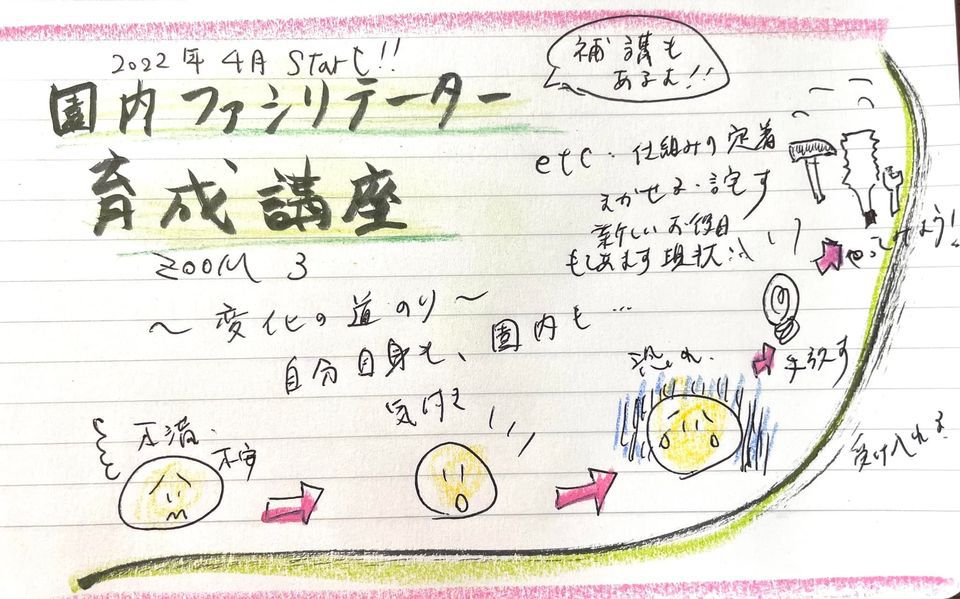 2022年 4月 Start!!
園内ファシリテーター
育成講座
補講も
あるよ!!
ZOOM 3
etc・仕組みの定着
まかせる・託す
新しいお役目
〜変化の道のり〜
自分自身も、園内も…
不満、
不安
気付き
恐れ、
手放す
やってみよう!
受け入れる